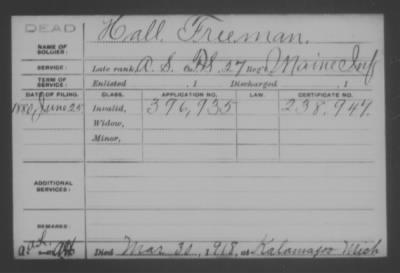 DEAD
Hall Freeman.
NAME OF SOLDIER:
SERVICE: Late rank, R. S. Co. 27 Reg't Maine Inf
TERM OF SERVICE: Enlisted , 1 Discharged , 1
DATE OF FILING. CLASS. APPLICATION NO. LAW. CERTIFICATE NO.
1880, June 25 Invalid, 396,935 238,947.
Widow,
Minor,
ADDITIONAL SERVICES:
REMARKS:
Died Mar 30, 1918, at Kalamazoo Mich